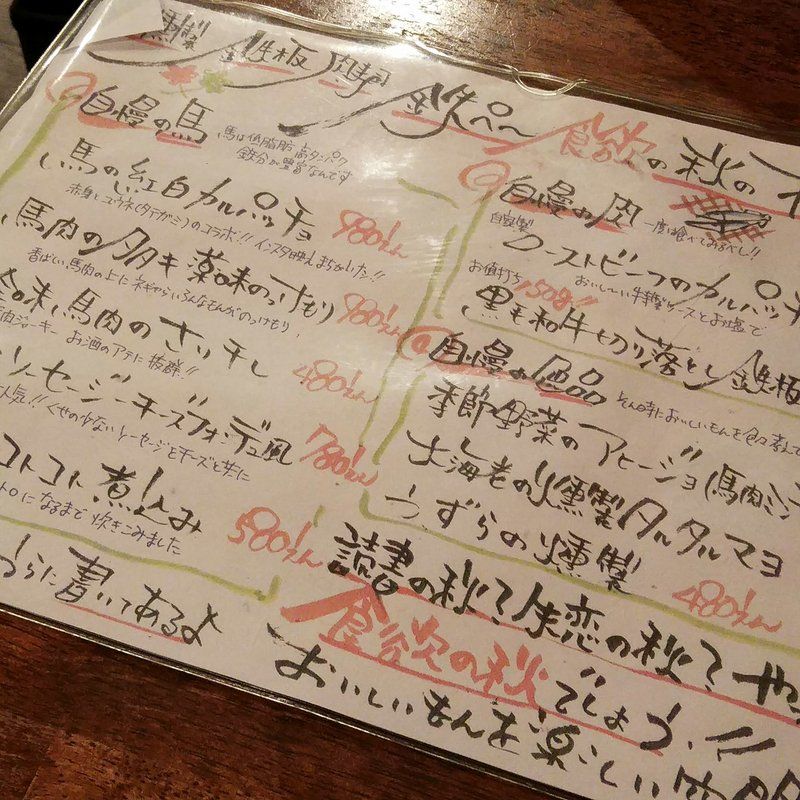 燻製 鉄板 肉寿司 鉄ペ〜 食欲の秋の
自慢の馬
馬は低脂肪 高タンパク
鉄分が豊富なんです
馬の紅白カルパッチョ 980えん
赤身とコウネ(タテガミ)のコラボ!! インスタ映えまちがいなし!!
馬肉のタタキ 薬味のっけもり 980えん
香ばしい馬肉の上にネギやらいろんなもんがのっけもり
馬肉のさいぼし 480えん
肉ジャーキー お酒のアテに抜群!!
ソーセージ チーズフォンデュ風 780えん
人気!! くせの少ないソーセージをチーズと共に
コトコト煮込み 580えん
トロになるまで炊きこみました
うらに書いてあるよ
自慢の肉 一度は食べてみるべし!!
自家製
ローストビーフのカルパッチョ
おいしーい特製ソースとお塩で
お値打ち 150g!!
黒毛和牛切り落とし 鉄板
自慢の逸品 その時においしいもんを色々考えて
季節野菜のアヒージョ(馬肉ミン
大海老の燻製タルタルマヨ
うずらの燻製 480えん
読書の秋? 失恋の秋? やっ
食欲の秋でしょう!!
おいしいもんを楽しい